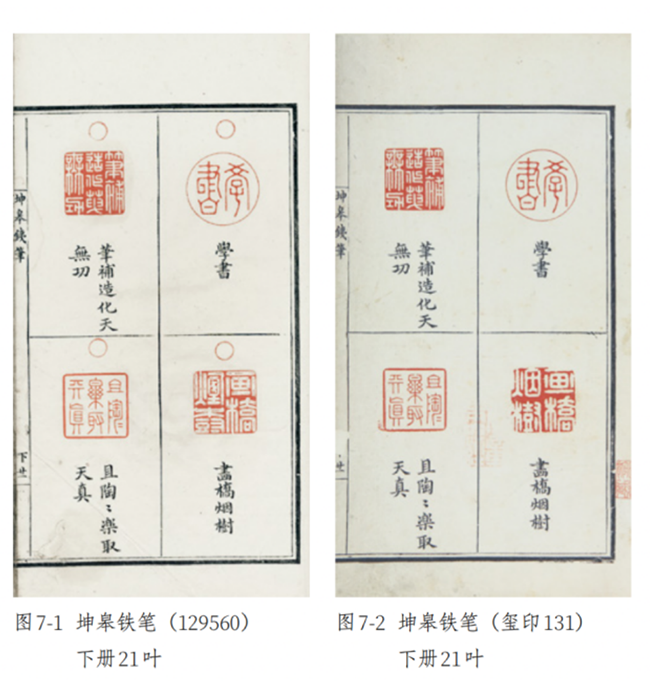 學書
筆補造化天
無功
畫橋烟樹
且陶〻樂取
天真
坤皋鐵筆
下 廿一
學書
筆補造化天
無功
畫橋烟樹
且陶〻樂取
天真
坤皋鐵筆
图7-1 坤皋铁笔（129560）
下册21叶
图7-2 坤皋铁笔（玺印131）
下册21叶